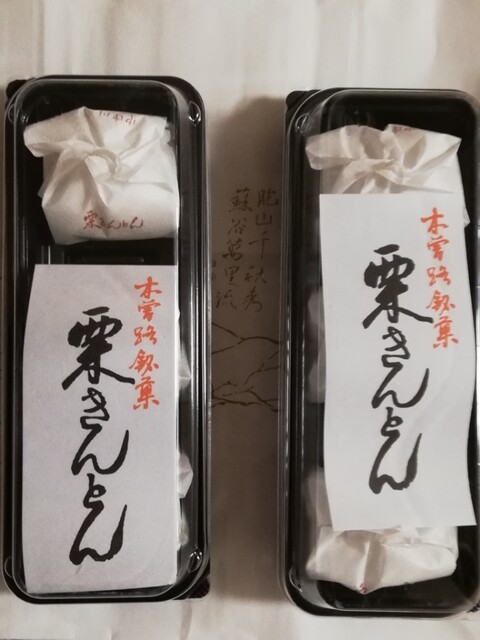 栗きんとん
木曽路銘菓
栗きんとん
山千秋秀
蘇谷萬里流
木曽路銘菓
栗きんとん